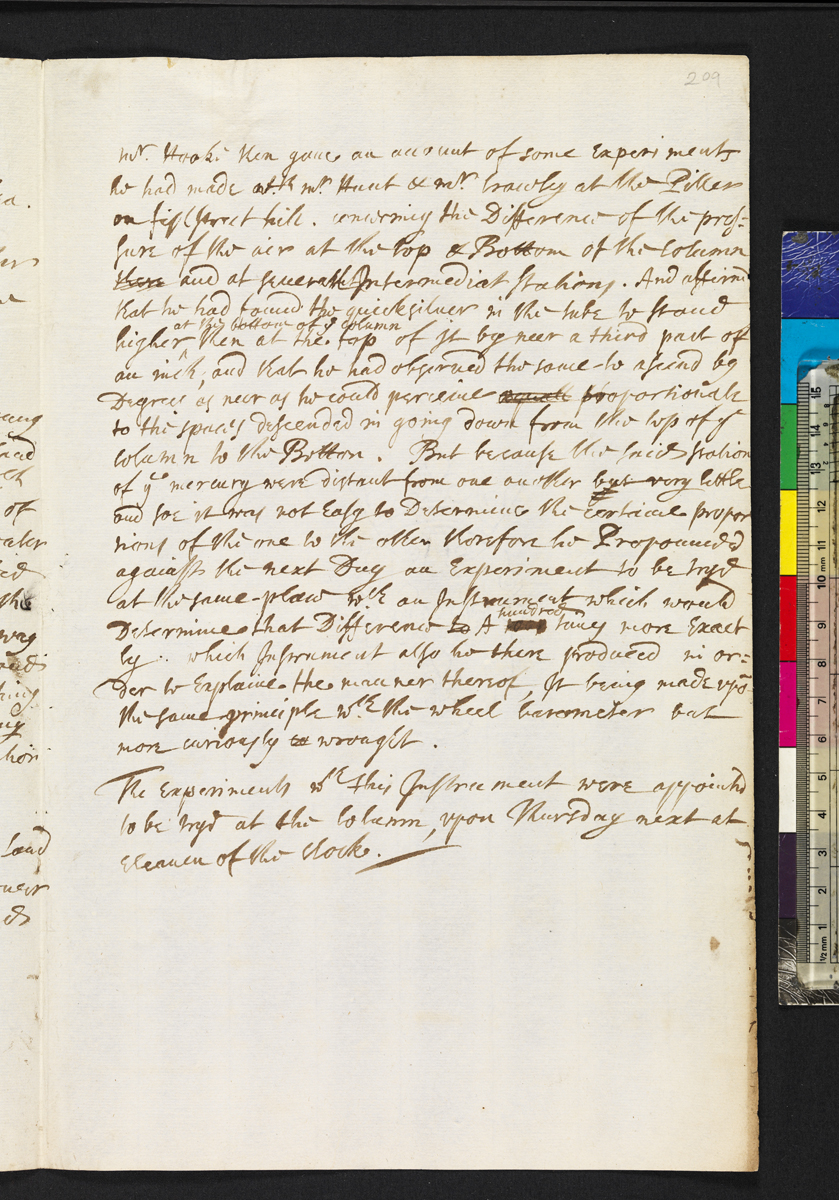 209
Mr. Hooke then gave an account of some Experiments
he had made with Mr Hunt & Mr. Crawley at the Piller
on fish street hill. concerning the Difference of the pres-
sure of the air at the top & Bottom of the column
there and at severall Intermediat stations. And affirmd
that he had found the quicksilver in the tube to stand
at the bottom of ye column
higher then at the top of it by neer a third part of
an inch, and that he had observed the same to ascend by
Degrees as neer as he could perceive equall proportionale
to the spaces descended in going down from the top of ye
column to the Bottom. But because the said station
of ye mercury were distant from one another but very little
and soe it was not Easy to Determine the certaine propor
tions of the one to the other therefore he Propounded
against the next Day an Experiment to be tryd
at the same place wth an Instrument which would
hundred
Determine that Difference to A times more Exact
ly. which Instrument also he there produced in or=
der to Explaine the manner thereof, It being made upō
the same principle wth the wheel barometer but
more curiously wrought.
The Experiments wth this Instrument were appointd
to be tryd at the Column, upon Thursday next at
Eleaven of the Clocke.